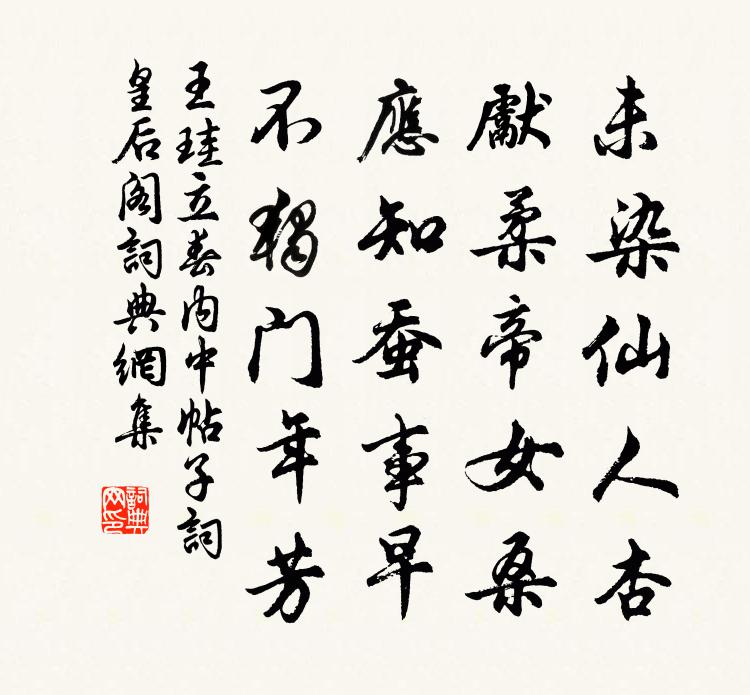 未染仙人杏
獻柔帝女桑
應知蚕事早
不獨門年芳
王珪立春内中帖子詞
皇后閣詞典網集
詞典
网印